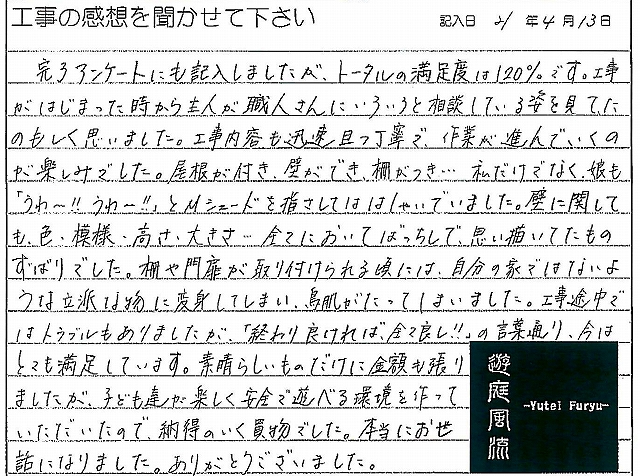 工事の感想を聞かせて下さい
記入日 21 年 4 月 13 日
完了アンケートにも記入しましたが、トータルの満足度は120%です。工事
がはじまった時から主人が職人さんにいろいろと相談している姿を見て、た
のもしく思いました。工事内容も迅速且つ丁寧で、作業が進んでいくの
が楽しみでした。屋根が付き、壁ができ、柵がつき… 私だけでなく、娘も
「うわ〜!! うわ〜!!」とMシェードを指さしてははしゃいでいました。壁に関して
も、色・模様・高さ・大きさ… 全てにおいてばっちしで、思い描いてたもの
ずばりでした。柵や門扉が取り付けられる頃には、自分の家ではないよ
うな立派な物に変身してしまい、鳥肌がたってしまいました。工事途中で
はトラブルもありましたが、「終わり良ければ、全て良し!!」の言葉通り、今は
とても満足しています。素晴らしいものだけに金額も張り
ましたが、子ども達が楽しく安全で遊べる環境を作って
いただいたので、納得のいく買物でした。本当にお世
話になりました。ありがとうございました。
遊庭風流
~Yutei Furyu~